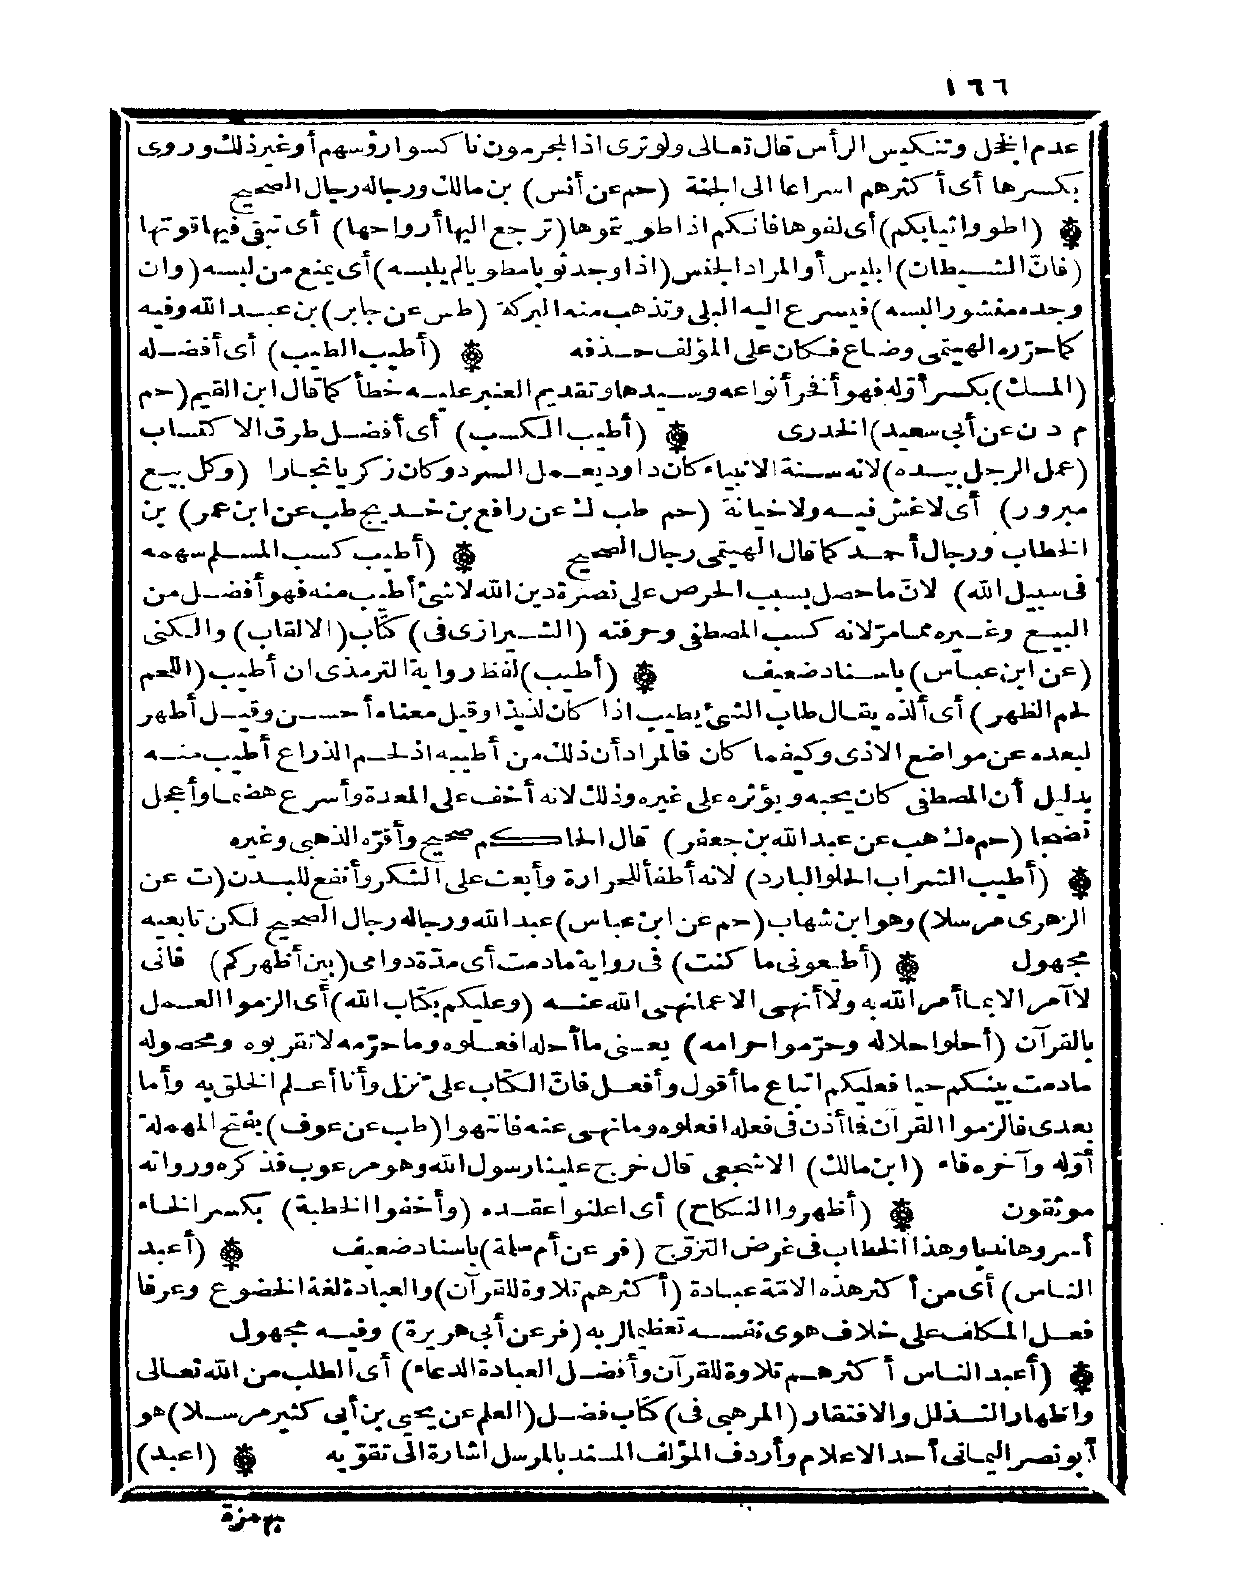 ١٦٦
عدم الخجل وتنكيس الرأس قال تعالى ولو ترى اذ المجرمون ناكسوا رؤسهم أو غير ذلك وروى
بكسرها أى أكثرهم اسراعا الى الجنة (حم عن أنس) بن مالك ورجاله رجال الصحيح
(اطووا ثيابكم) أى لفوها فانكم اذا طويتموها (ترجع اليها أرواحها) أى تبقى فيها قوتها
(فانّ الشيطان) ابليس أو المراد الجنس (اذا وجد ثوبا مطويا لم يلبسه) أى يمنع من لبسه (وان
وجده منشورا لبسه) فيسرع اليه البلى وتذهب منه البركة (طس عن جابر) بن عبد الله وفيه
كما حرّره الهيتمى وضاع فكان على المؤلف حذفه (أطيب الطيب) أى أفضله
(المسك) بكسر أوّله فهو أفخر أنواعه وسيدها وتقديم العنبر عليه خطأ كما قال ابن القيم (حم
م د ن عن أبى سعيد) الخدرى (أطيب الكسب) أى أفضل طرق الاكتساب
(عمل الرجل بيده) لانه سنة الانبياء كان داود يعمل السرد وكان زكريا نجارا (وكل بيع
مبرور) أى لا غش فيه ولا خيانة (حم طب ك عن رافع بن خديج طب عن ابن عمر) بن
الخطاب ورجال أحمد كما قال الهيتمى رجال الصحيح (أطيب كسب المسلم سهمه
فى سبيل الله) لانّ ما حصل بسبب الحرص على نصرة دين الله لا شئ أطيب منه فهو أفضل من
البيع وغيره مما مرّ لانه كسب المصطفى وحرفته (الشيرازى فى) كتاب (الالقاب) والكنى
(عن ابن عباس) باسناد ضعيف (أطيب) لفظ رواية الترمذى ان أطيب (اللحم
لحم الظهر) أى ألذه يقال طاب الشئ يطيب اذا كان لذيذا وقيل معناه أحسن وقيل أطهر
لبعده عن مواضع الاذى وكيفما كان فالمراد أن ذلك من أطيبه اذ لحم الذراع أطيب منه
بدليل أن المصطفى كان يحبه ويؤثره على غيره وذلك لانه أخف على المعدة وأسرع هضما وأعجل
نضجا (حم ه ك هب عن عبد الله بن جعفر) قال الحاكم صحيح وأقرّه الذهبى وغيره
(أطيب الشراب الحلو البارد) لانه أطفأ للحرارة وأبعث على الشكر وأنفع للبدن (ت عن
الزهرى مرسلا) وهو ابن شهاب (حم عن ابن عباس) عبد الله ورجاله رجال الصحيح لكن تابعيه
مجهول (أطيعونى ما كنت) فى رواية ما دمت أى مدّة دوامى (بين أظهركم) فانى
لا آمر الا بما أمر الله به ولا أنهى الا عما نهى الله عنه (وعليكم بكتاب الله) أى الزموا العمل
بالقرآن (أحلوا حلاله وحرّموا حرامه) يعنى ما أحله افعلوه وما حرّمه لا تقربوه ومحصوله
ما دمت بينكم حيا فعليكم اتباع ما أقول وأفعل فانّ الكتاب علىّ نزل وأنا أعلم الخلق به وأما
بعدى فالزموا القرآن فما أذن فى فعله افعلوه وما نهى عنه فانتهوا (طب عن عوف) بفتح المهملة
أوّله وآخره فاء (ابن مالك) الاشجعى قال خرج علينا رسول الله وهو مرعوب فذكره ورواته
موثقون (أظهروا النكاح) أى اعلنوا عقده (وأخفوا الخطبة) بكسر الخاء
أسروها ندبا وهذا الخطاب فى غرض التزوّج (فر عن أم سلمة) باسناد ضعيف (أعبد
الناس) أى من أكثر هذه الامّة عبادة (أكثرهم تلاوة للقرآن) والعبادة لغة الخضوع وعرفا
فعل المكلف على خلاف هوى نفسه تعظيما لربه (فر عن أبى هريرة) وفيه مجهول
(أعبد الناس أكثرهم تلاوة للقرآن وأفضل العبادة الدعاء) أى الطلب من الله تعالى
واظهار التذلل والافتقار (المرهبى فى) كتاب فضل (العلم عن يحيى بن أبى كثير مرسلا) هو
أبو نصر اليمانى أحد الاعلام وأردف المؤلف المسند بالمرسل اشارة الى تقويه (اعبد)
بهمزة